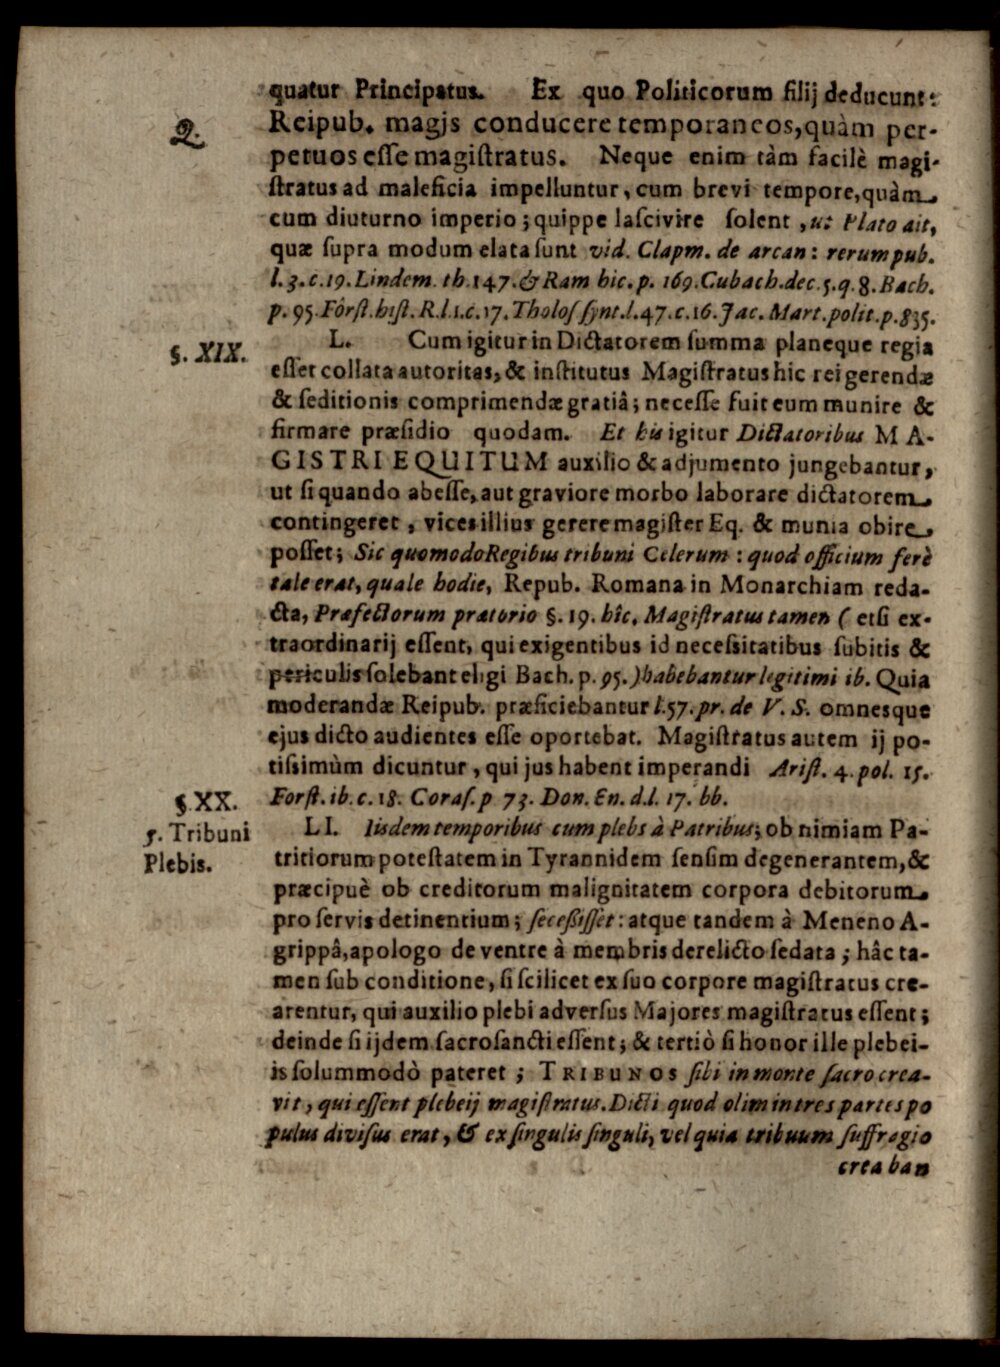 quatur Principatus. Ex quo Politicorum filij deducunt:
2.
Reipub. magis conducere temporaneos, quàm per-
petuos eſſe magiſtratus. Neque enim tàm facilè magi-
ſtratus ad maleficia impelluntur, cum brevi tempore, quàm
cum diuturno imperio; quippe laſcivire ſolent, ut Plato ait,
quæ ſupra modum elata ſunt vid. Clapm. de arcan: rerum pub.
l. 3. c. 19. Lindem. th. 147. & Ram hic. p. 169. Cubach. dec. 5. q. 8. Bach.
p. 95. Fôrſt. hiſt. R. l. 1. c. 17. Tholoſ ſynt. l. 47. c. 16. Jac. Mart. polit. p. 835.
§. XIX.
L. Cum igitur in Dictatorem ſumma planeque regia
eſſet collata autoritas, & inſtitutus Magiſtratus hic rei gerendæ
& ſeditionis comprimendæ gratiâ; neceſſe fuit eum munire &
firmare præſidio quodam. Et his igitur Dictatoribus MA-
GISTRI EQUITUM auxilio & adjumento jungebantur,
ut ſi quando abeſſe, aut graviore morbo laborare dictatorem
contingeret, vices illius gerere magiſter Eq. & munia obire
poſſet; Sic quomodo Regibus tribuni Celerum: quod officium ferè
tale erat, quale hodie, Repub. Romana in Monarchiam reda-
cta, Præfectorum prætorio §. 19. hîc. Magiſtratus tamen ( etſi ex-
traordinarij eſſent, qui exigentibus id neceſsitatibus ſubitis &
periculis ſolebant eligi Bach. p. 95. ) habebantur legitimi ib. Quia
moderandæ Reipub. præficiebantur l. 57. pr. de V. S. omnesque
ejus dicto audientes eſſe oportebat. Magiſtratus autem ij po-
tiſsimùm dicuntur, qui jus habent imperandi Ariſt. 4. pol. 15.
Forſt. ib. c. 18. Coraſ. p 73. Don. En. d. l. 17. bb.
§. XX.
5. Tribuni
Plebis.
LI. Iisdem temporibus cum plebs à Patribus; ob nimiam Pa-
tritiorum poteſtatem in Tyrannidem ſenſim degenerantem, &
præcipuè ob creditorum malignitatem corpora debitorum
pro ſervis detinentium; ſeceßiſſet: atque tandem à Meneno A-
grippâ, apologo de ventre à membris derelicto ſedata; hâc ta-
men ſub conditione, ſi ſcilicet ex ſuo corpore magiſtratus cre-
arentur, qui auxilio plebi adverſus Majores magiſtratus eſſent;
deinde ſi ijdem ſacroſancti eſſent; & tertiò ſi honor ille plebei-
is ſolummodò pateret; TRIBUNOS ſibi in monte ſacro crea-
vit, qui eſſent plebeij magiſtratus. Dicti quod olim in tres partes po
pulus diviſus erat, & ex ſingulis ſinguli, vel quia tribuum ſuffragio
crea ban